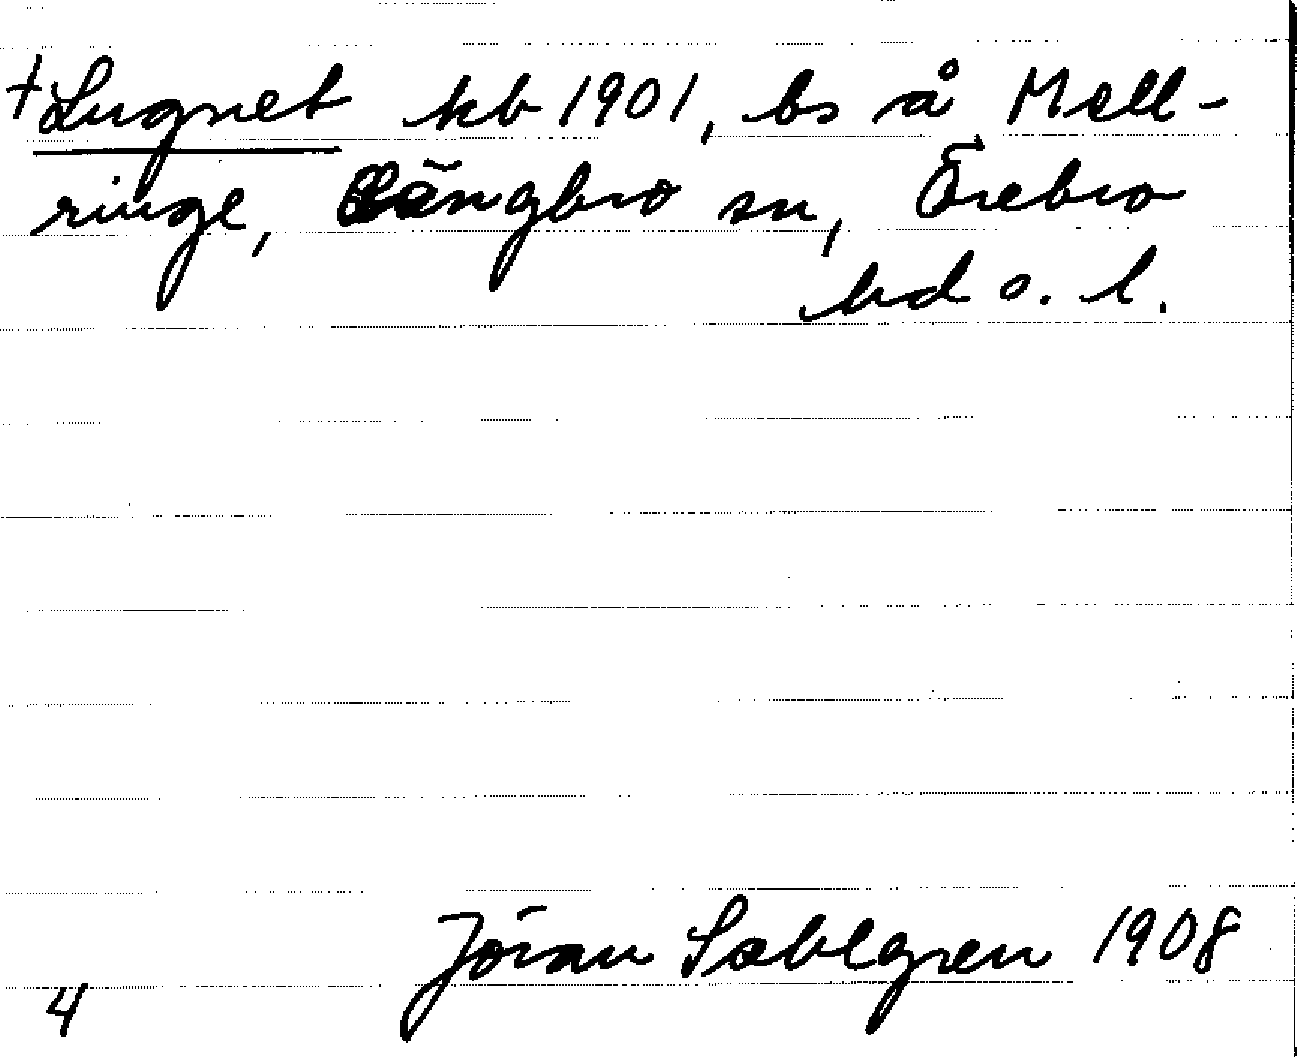 †Lugnet kb 1901, bs å Mell-
ringe, Längbro sn, Örebro
hd o. l.
Jöran Sahlgren 1908
4